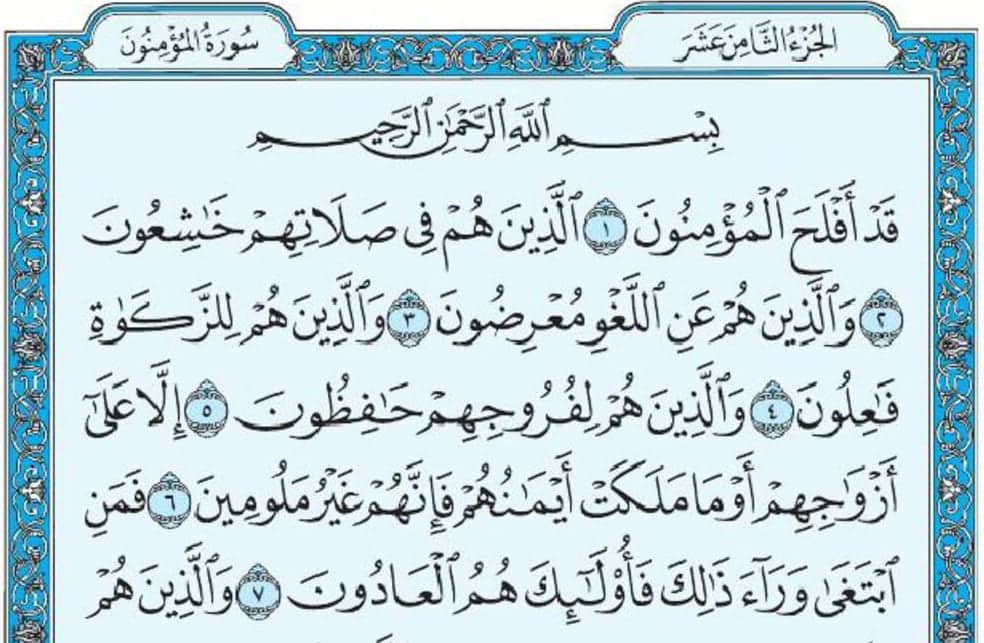 الجُزْءُ الثَّامِنَ عَشَرَ
سُورَةُ المُؤْمِنُونَ
بِسْمِ ٱللَّهِ ٱلرَّحْمَٰنِ ٱلرَّحِيمِ
قَدْ أَفْلَحَ ٱلْمُؤْمِنُونَ ١ ٱلَّذِينَ هُمْ فِى صَلَاتِهِمْ خَٰشِعُونَ
٢ وَٱلَّذِينَ هُمْ عَنِ ٱللَّغْوِ مُعْرِضُونَ ٣ وَٱلَّذِينَ هُمْ لِلزَّكَوٰةِ
فَٰعِلُونَ ٤ وَٱلَّذِينَ هُمْ لِفُرُوجِهِمْ حَٰفِظُونَ ٥ إِلَّا عَلَىٰٓ
أَزْوَٰجِهِمْ أَوْ مَا مَلَكَتْ أَيْمَٰنُهُمْ فَإِنَّهُمْ غَيْرُ مَلُومِينَ ٦ فَمَنِ
ٱبْتَغَىٰ وَرَآءَ ذَٰلِكَ فَأُو۟لَٰٓئِكَ هُمُ ٱلْعَادُونَ ٧ وَٱلَّذِينَ هُمْ